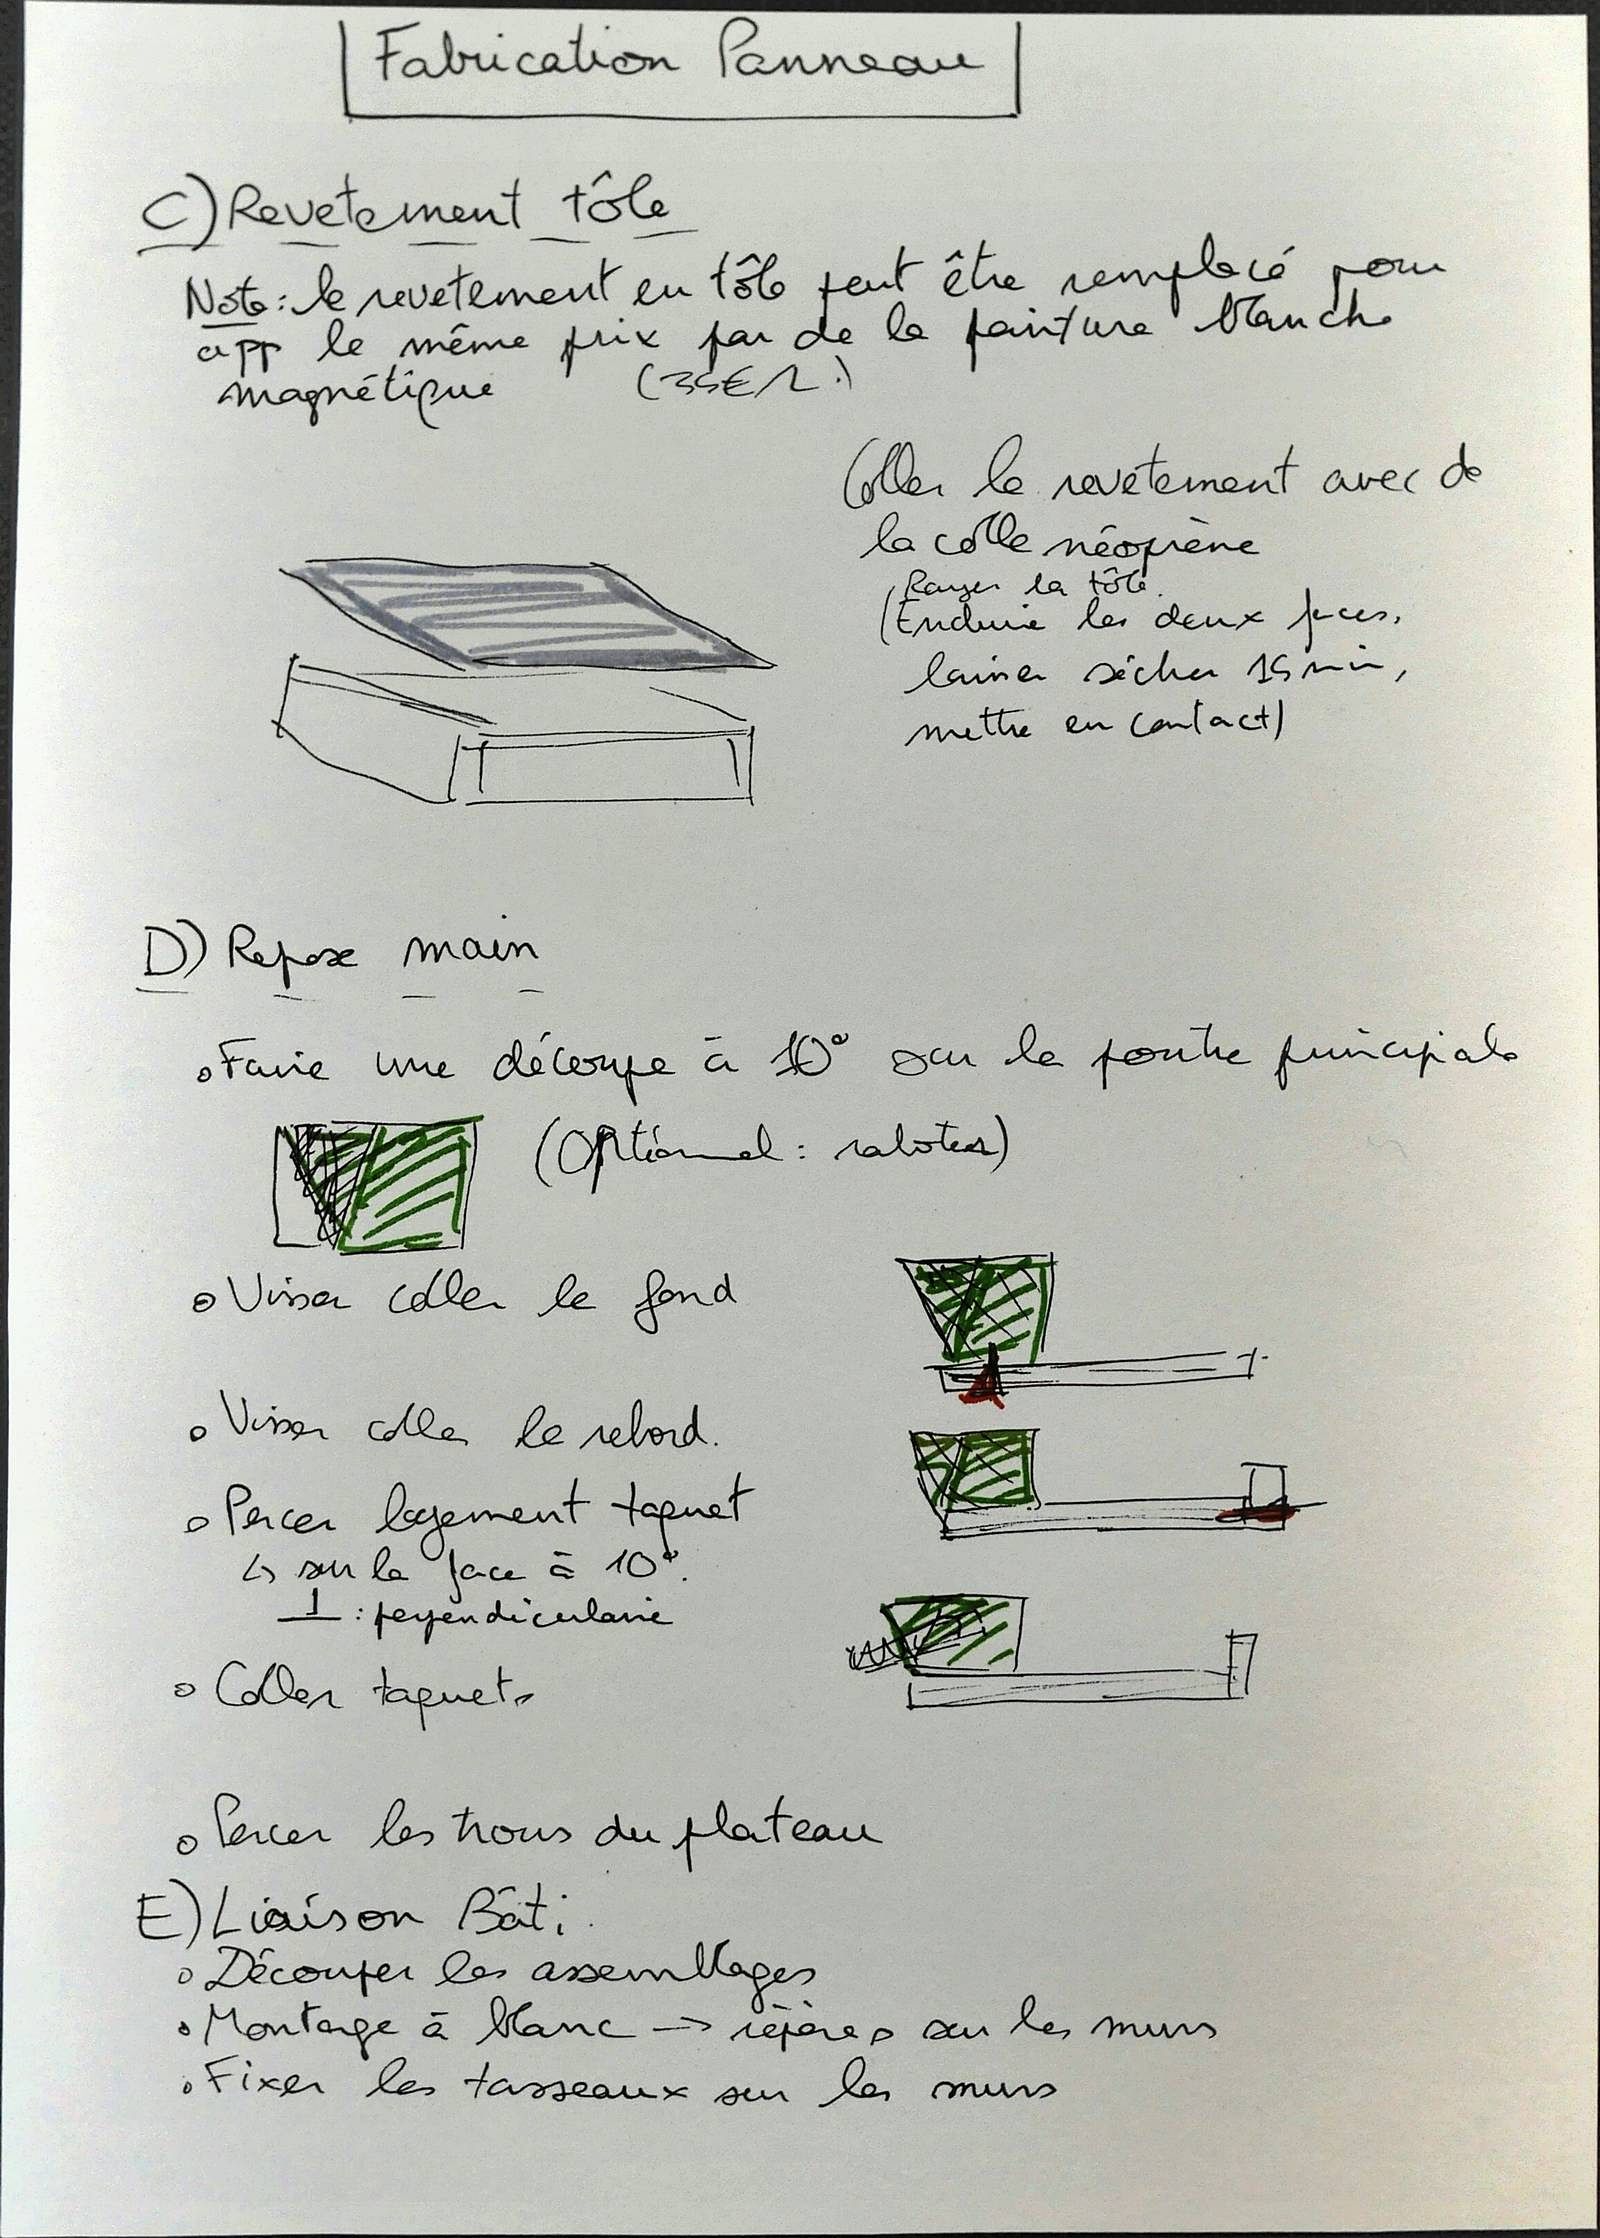 Fabrication Panneau
C) Revetement tôle
Note: le revetement en tôle peut être remplacé pour
app le même prix par de la peinture blanche
magnétique (35€/L.)
Coller le revetement avec de
la colle néoprène
Rayer la tôle.
(Enduire les deux faces,
laisser sécher 15 min,
mettre en contact)
D) Repose main
Faire une découpe à 10° sur la poutre principale
(Optionnel : raboter)
Visser coller le fond
Visser coller le rebord.
Percer logement taquet
↳ sur la face à 10°.
⊥ : perpendiculaire
Coller taquets
Percer les trous du plateau
E) Liaison Bâti.
Découper les assemblages
Montage à blanc → repères sur les murs
Fixer les tasseaux sur les murs